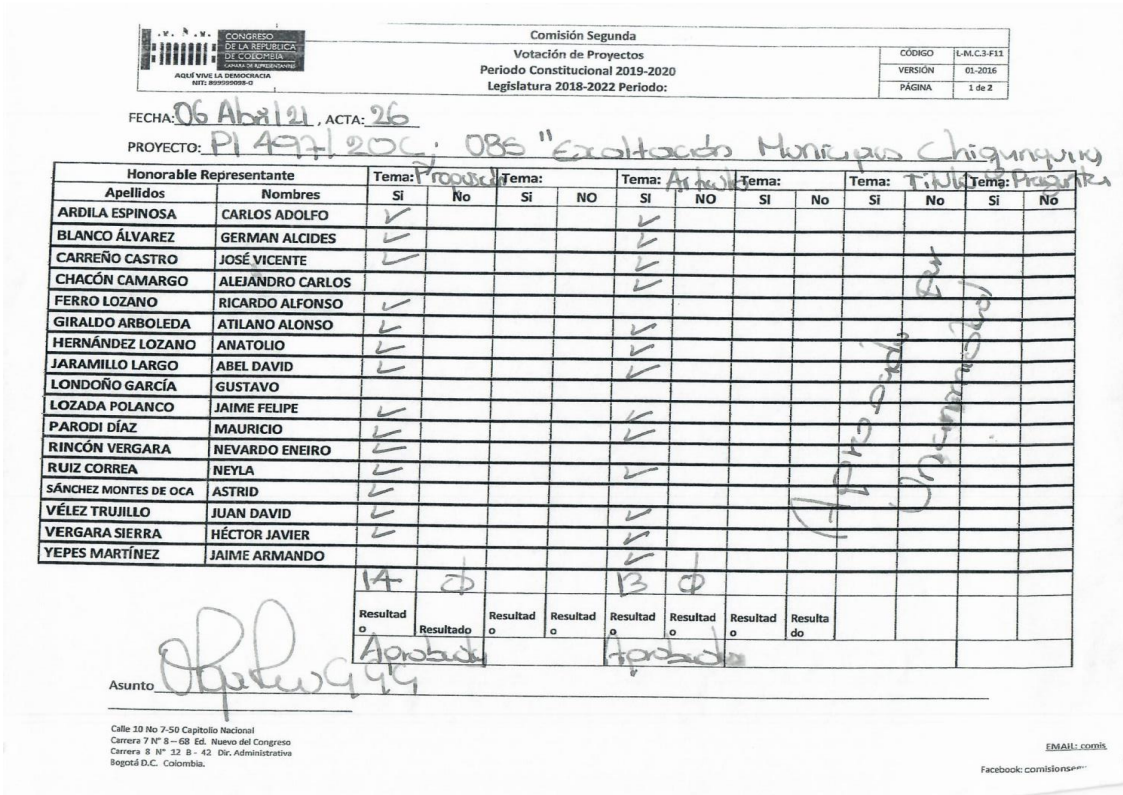 CONGRESO
DE LA REPÚBLICA
DE COLOMBIA
CÁMARA DE REPRESENTANTES
AQUÍ VIVE LA DEMOCRACIA
NIT: 899999098-0
Comisión Segunda
Votación de Proyectos
Periodo Constitucional 2019-2020
Legislatura 2018-2022 Periodo:
CÓDIGO L-M.C.3-F11
VERSIÓN 01-2016
PÁGINA 1 de 2
FECHA: 06 Abril 21, ACTA: 26
PROYECTO: Pl 497/20C; OBS "Exaltación Municipio Chiquinquira
Honorable Representante Tema: Proposición Tema: Tema: Articulado Tema: Tema: Titulo y Tema: Pregunta
Apellidos Nombres Si No Si NO SI NO SI No Si No Si No
ARDILA ESPINOSA CARLOS ADOLFO ✓ ✓
BLANCO ÁLVAREZ GERMAN ALCIDES ✓ ✓
CARREÑO CASTRO JOSÉ VICENTE ✓ ✓
CHACÓN CAMARGO ALEJANDRO CARLOS ✓
FERRO LOZANO RICARDO ALFONSO ✓
GIRALDO ARBOLEDA ATILANO ALONSO ✓ ✓
HERNÁNDEZ LOZANO ANATOLIO ✓ ✓
JARAMILLO LARGO ABEL DAVID ✓ ✓
LONDOÑO GARCÍA GUSTAVO
LOZADA POLANCO JAIME FELIPE ✓ ✓
PARODI DÍAZ MAURICIO ✓ ✓
RINCÓN VERGARA NEVARDO ENEIRO ✓
RUIZ CORREA NEYLA ✓ ✓
SÁNCHEZ MONTES DE OCA ASTRID ✓
VÉLEZ TRUJILLO JUAN DAVID ✓ ✓
VERGARA SIERRA HÉCTOR JAVIER ✓ ✓
YEPES MARTÍNEZ JAIME ARMANDO ✓
Aprobado por
Unanimidad
14 Ø 13 Ø
Resultado Resultado Resultado Resultado Resultado Resultado Resultado Resultado
Aprobado Aprobado
Asunto
Calle 10 No 7-50 Capitolio Nacional
Carrera 7 N° 8 – 68 Ed. Nuevo del Congreso
Carrera 8 N° 12 B - 42 Dir. Administrativa
Bogotá D.C. Colombia.
EMAIL: comis
Facebook: comisionse